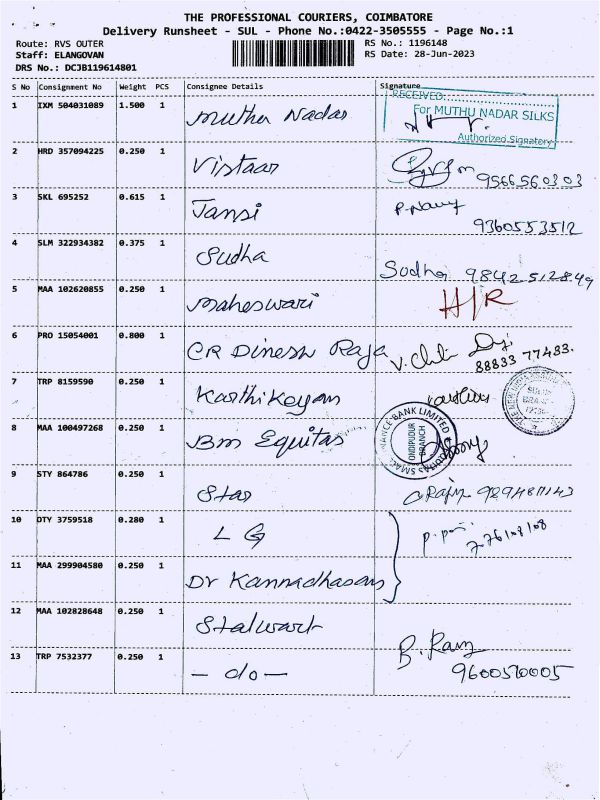 THE PROFESSIONAL COURIERS, COIMBATORE
Delivery Runsheet - SUL - Phone No.:0422-3505555 - Page No.:1
Route: RVS OUTER RS No.: 1196148
Staff: ELANGOVAN RS Date: 28-Jun-2023
DRS No.: DCJB119614801
S No Consignment No Weight PCS Consignee Details Signature
1 IXM 504031089 1.500 1 Muthu Nadar
RECEIVED
For MUTHU NADAR SILKS
Authorized Signatory
2 HRD 357094225 0.250 1 Vistaar
9566560303
3 SKL 695252 0.615 1 Jansi
9360553512
4 SLM 322934382 0.375 1 Sudha
Sudha 9842512849
5 MAA 102620855 0.250 1 Maheswari H/R
6 PRO 15054001 0.800 1 CR Dinesh Raja
88833 77483.
7 TRP 8159590 0.250 1 Karthikeyan
8 MAA 100497268 0.250 1 Bm Equitas
ONDIPUDUR
BRANCH
9 STY 864786 0.250 1 Star
10 DTY 3759518 0.280 1 L G
11 MAA 299904580 0.250 1 Dr Kannadhasan
12 MAA 102828648 0.250 1 Stalwart
13 TRP 7532377 0.250 1 — do —
9600570005